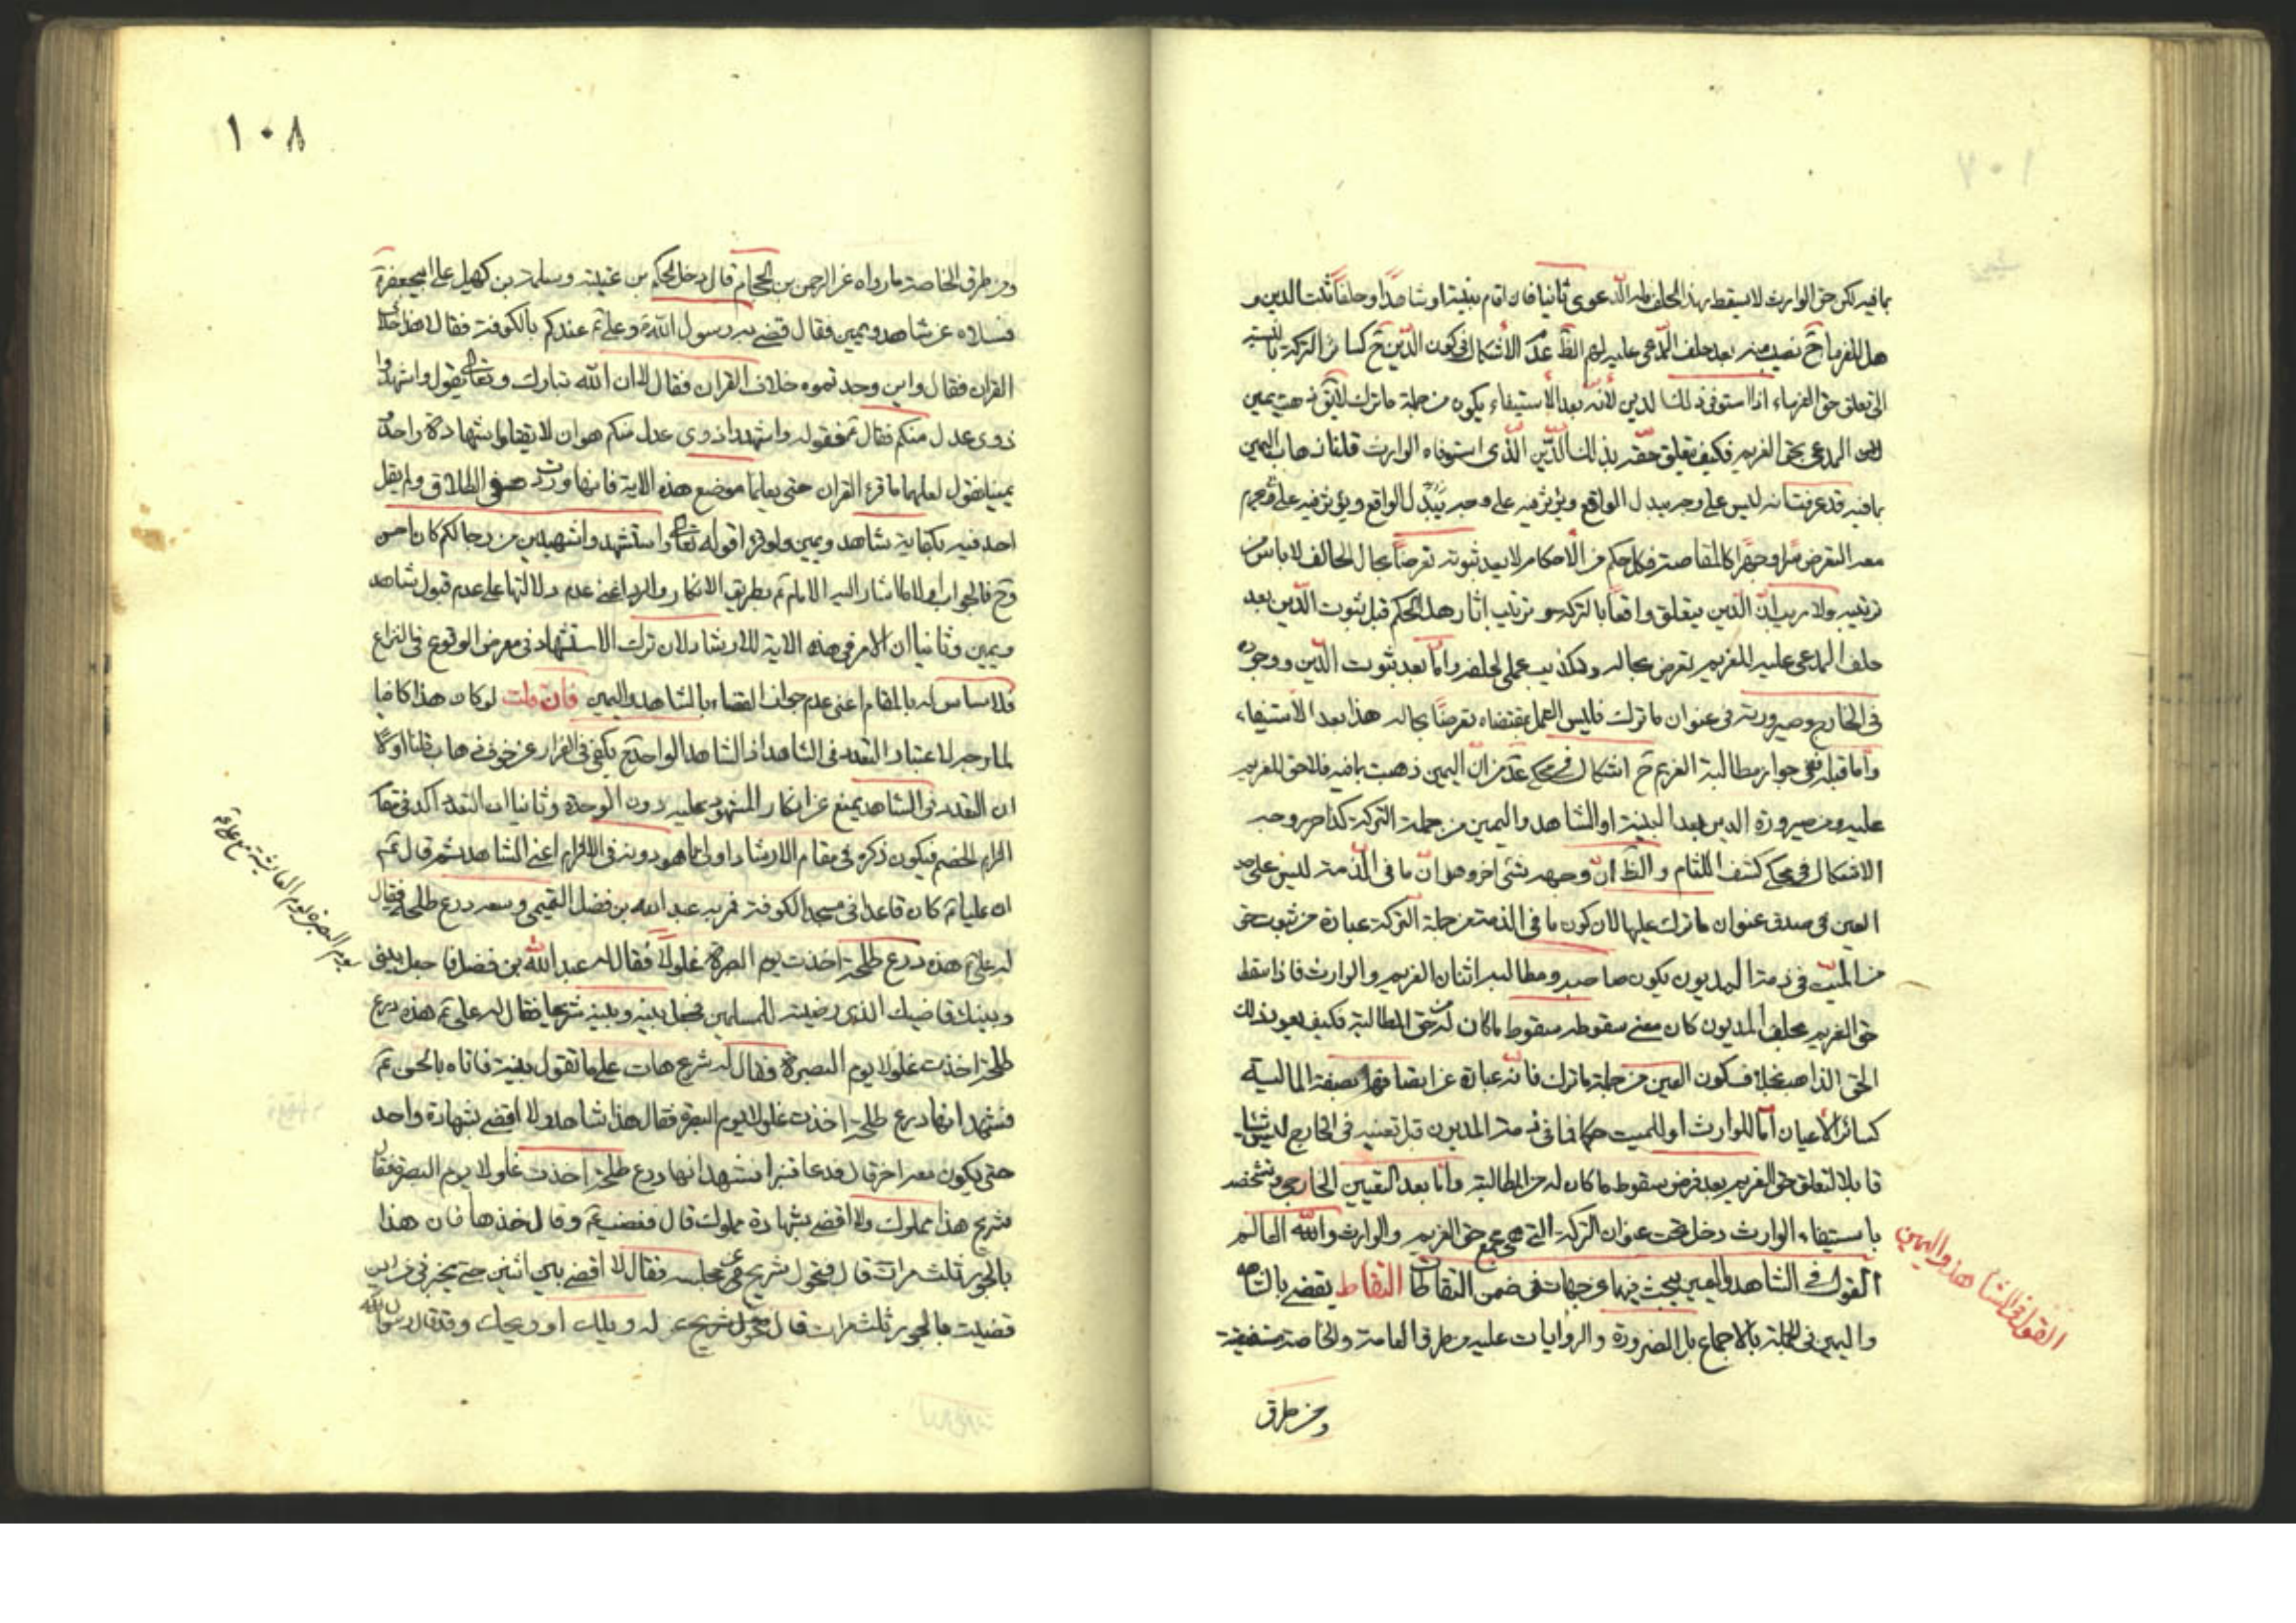 بما فيه لكن حق الوارث لا يسقط بهذا الحلف فله الدعوى ثانيا فان اقام بينة او شاهدا وحلفا ثبت الدين و
هل للغرماء ح نصيب منه بعد حلف المدعى عليه لهم الظ عدم الاشكال في كون الدين ح كسائر التركة بالنسبة
الى تعلق حق الغرماء اذا استوفى ذلك الدين لأنه بعد الاستيفاء يكون من جملة ما ترك لا يق ذهبت يمين
المدعى بحق الغريم فكيف يتعلق حقه بذلك الدين الذي استوفاه الوارث قلنا ذهاب اليمين
بما فيه قد عرفت انه ليس على وجه يبدل الواقع ويؤثر فيه على وجه يتبدل الواقع ويؤثر فيه على وجه يحرم
معه التعرض سرا وجهرا كالمقاصة فكل حكم من الأحكام لا يعد ثبوته تعرضا بحال الحالف لا باس من
ترتيبه ولا ريب ان الدين يتعلق واقعا بالتركة وترتيب اثار هذا الحكم قبل ثبوت الدين بعد
حلف المدعى عليه للغريم تعرض بحاله وتكذيب عملي لحلفه واما بعد ثبوت الدين ووجوده
في الخارج وصيرورته في عنوان ما ترك فليس العمل بمقتضاه تعرضا بحاله هذا بعد الاستيفاء
وأما قبله ففي جواز مطالبة الغريم ح اشكال في محكي عد من ان اليمين ذهبت بما فيه فلا حق للغريم
عليه ومن صيرورة الدين بعد البينة او الشاهد واليمين من جملة التركة كذا صر وجه
الاشكال في محكي كشف اللثام والظ ان وجهه شئ اخر وهو ان ما في الذمة ليس على حد
العين في صدق عنوان ما ترك عليها لان كون ما في الذمة من جملة التركة عبارة من ثبوت حق
من الميت في ذمة المديون يكون صاحبه ومطالبه اثنان الغريم والوارث فاذا سقط
حق الغريم بحلف المديون كان معنى سقوطه سقوط ما كان له من حق المطالبة فكيف يعود ذلك
الحق الذاهب بخلاف كون العين من جملة ما ترك فانه عبارة عن اتصافها بصفة المالية
كسائر الأعيان أما للوارث او للميت حكما فما في ذمة المديون قبل تعينه في الخارج ليس شيئا
قابلا لتعلق حق الغريم بعد فرض سقوط ما كان له من المطالبة وأما بعد التعيين الخارجي وتشخصه
باستيفاء الوارث دخل تحت عنوان التركة التي هي مجمع حق الغريم والوارث والله العالم
القول في الشاهد واليمين يبحث فيهما عن جهات في ضمن التقاطات التقاط يقضى بالشاهد
واليمين في الجملة بالاجماع بل الضرورة والروايات عليه من طرق العامة والخاصة مستفيضة
ومن طرق
القول في الشاهد واليمين
١٠٨
ومن طرق الخاصة ما رواه عن الرحمن بن الحجاج قال دخل الحكم بن عتيبة وسلمة بن كهيل على ابيجعفر ع
فسئلاه عن شاهد ويمين فقال قضى به رسول الله ص وعلي ع عندكم بالكوفة فقالا هذا خلاف
القران فقال واين وجدتموه خلاف القران فقالا ان الله تبارك وتعالى يقول واشهدوا
ذوى عدل منكم فقال ع فقوله واشهدوا ذوى عدل منكم هو ان لا يقبلوا شهادة واحد و
يمينا يقول لعلهما ما قرء القران حتى يعلما موضع هذه الاية فانها وردت في الطلاق ولم يقل
احد فيه بكفاية شاهد ويمين ولو قرءا قوله تعالى واستشهدوا شهيدين من رجالكم كان احسن
وح فالجواب اولا ما اشار اليه الامام ع بطريق الانكار والرد اعنى عدم دلالتها على عدم قبول شاهد
ويمين وثانيا ان الامر في هذه الاية للارشاد لان ترك الاستشهاد في معرض الوقوع في النزاع
فلا مساس له بالمقام اعنى عدم جواز القضاء بالشاهد واليمين فان قلت لو كان هذا كافيا
لما وجه لاعتبار التعدد في الشاهد اذ الشاهد الواحد ح يكفى في الفرار عن خوف ذهاب قلنا اولا
ان التعدد في الشاهد يمنع عن انكار المشهود عليه دون الوحدة وثانيا ان التعدد اكد في مقام
الزام الخصم فيكون ذكره في مقام الارشاد اولى مما هو دونه في الالزام اعنى الشاهد ثم قال ع
ان عليا ع كان قاعدا في مسجد الكوفة فمر به عبد الله بن فضل التميمي ومعه درع طلحة فقال
له علي ع هذه درع طلحة اخذت يوم البصرة غلولا فقال له عبد الله بن فضل فاجعل بيني
وبينك قاضيك الذي رضيته للمسلمين فجعل بينه وبينه شريحا فقال له علي ع هذه درع
طلحة اخذت غلولا يوم البصرة فقال له شريح هات على ما تقول بينة فاتاه بالحسن ع
فشهد انها درع طلحة اخذت غلولا يوم البصرة فقال هذا شاهد ولا اقضى بشهادة واحد
حتى يكون معه اخر قال فدعا قنبرا فشهد انها درع طلحة اخذت غلولا يوم البصرة فقال
شريح هذا مملوك ولا اقضى بشهادة مملوك قال فغضب ع وقال خذها فان هذا
بالجور ثلث مرات قال فتحول شريح عن مجلسه فقال لا اقضى بين اثنين حتى تخبرني من اين
قضيت بالجور ثلث مرات قال فتحول شريح عن له ويلك او ويحك وقد قال رسول الله
يوم البصرة يوم العايشة مع علي ع